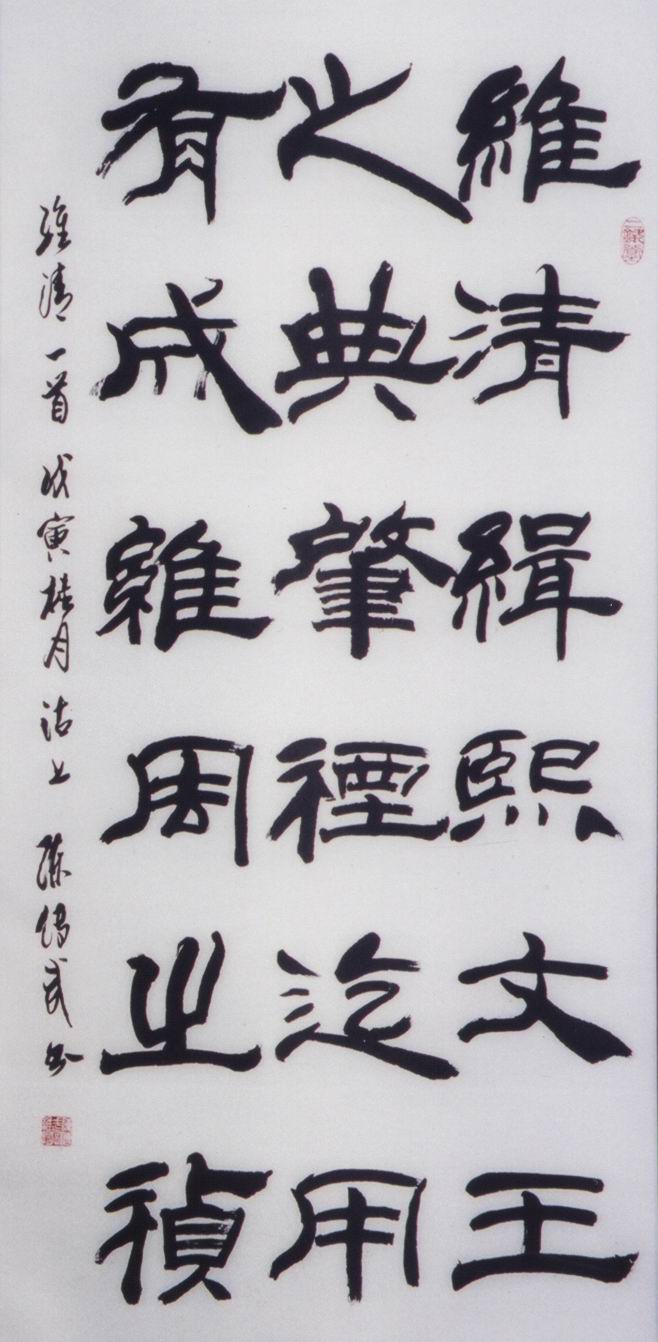 維清緝熙文王
之典肇禋迄用
有成維周之禎
維清一首 戊寅桂月 沽上 陈武书